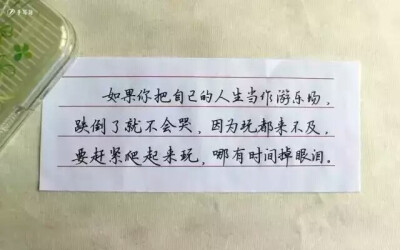 如果你把自己的人生当作游乐场，
跌倒了就不会哭，因为玩都来不及，
要赶紧爬起来玩，哪有时间掉眼泪。